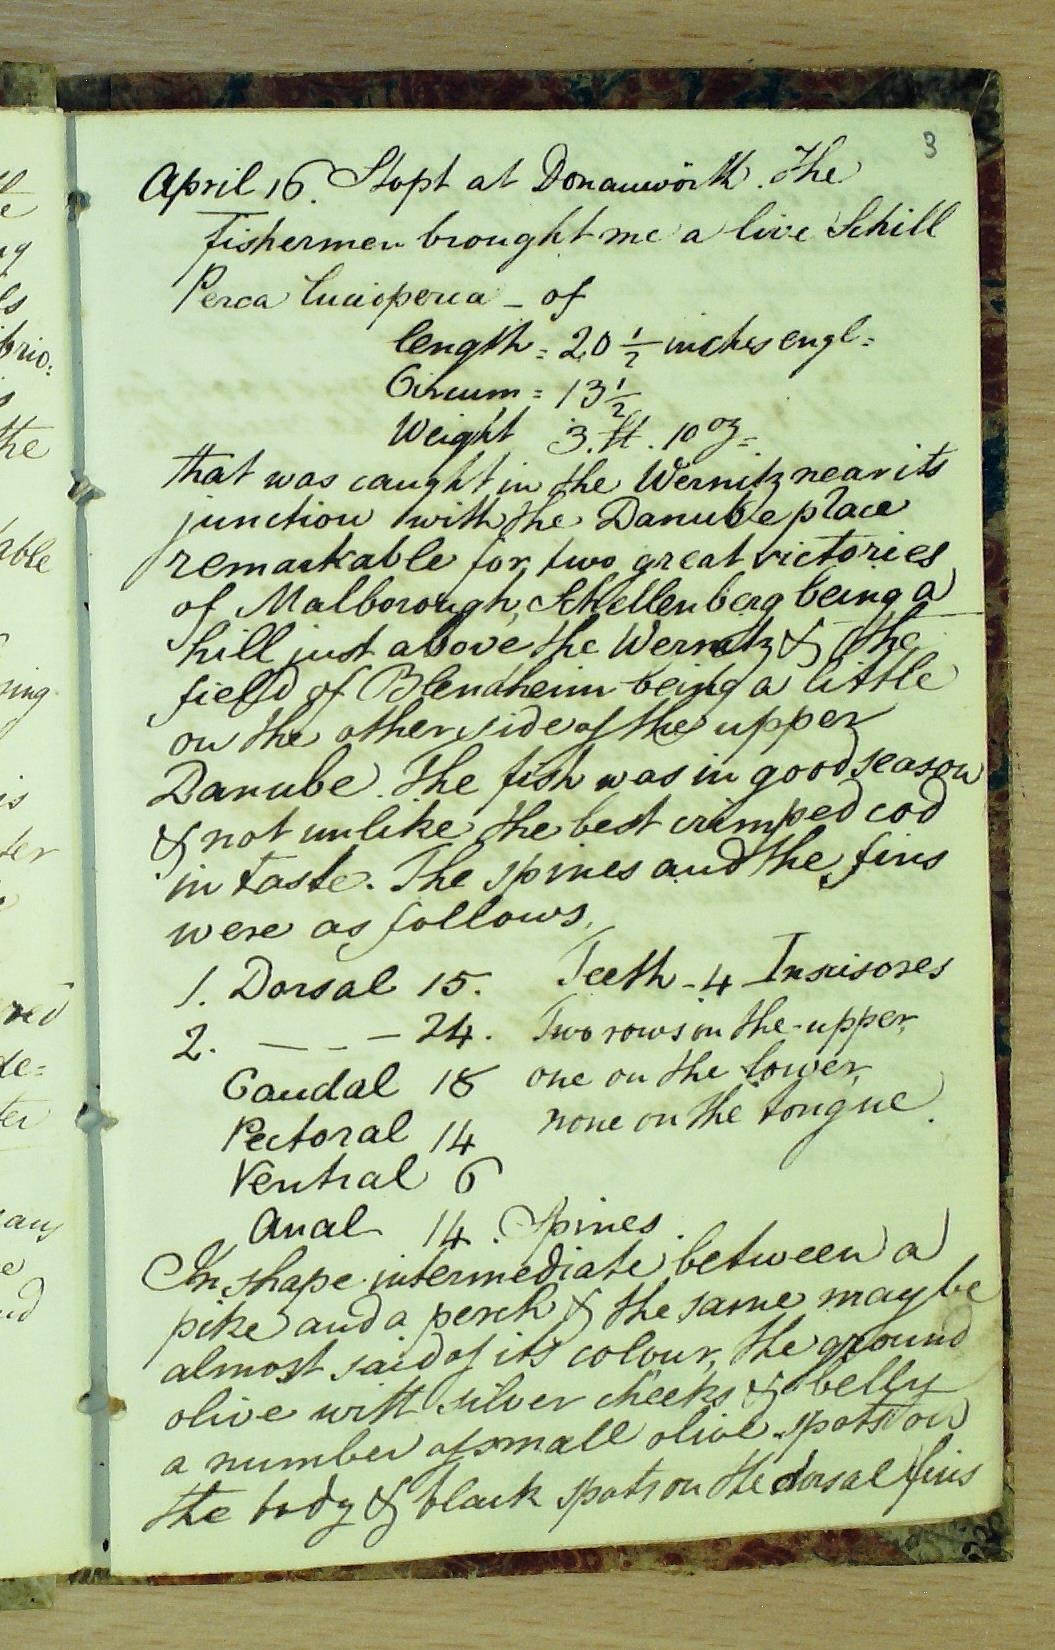 3
April 16. Stopt at Donauwörth. The
fishermen brought me a live Schill
Perca lucioperca - of
length = 20 1/2 inches engl =
Circum = 13 1/2
Weight 3. lt. 10 oz =
that was caught in the Wernitz near its
junction with the Danube place
remarkable for two great victories
of Malborough, Schellenberg being a
hill just above the Wernitz & the
field of Blendheim being a little
on the other side of the upper
Danube. The fish was in good season
& not unlike the best crimped cod
in taste. The spines and the fins
were as follows,
1. Dorsal 15. Teeth - 4 Inscisores
2. — — — 24. Two rows on the upper,
Caudal 18 one on the lower,
Pectoral 14 none on the tongue.
Ventral 6
Anal 14. Spines.
In shape intermediate between a
pike and a perch & the same may be
almost said of its colour, the ground
olive with silver cheeks & belly
a number of small olive spots on
the body & black spots on the dorsal fins